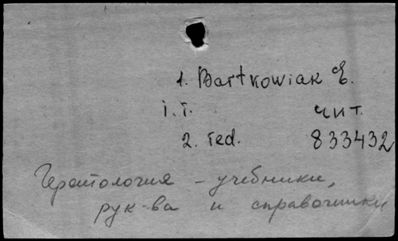 1. Bartkowiak E.
i. i. чит.
2. red. 833432
Геронтология - учебники,
рук-ва и справочники